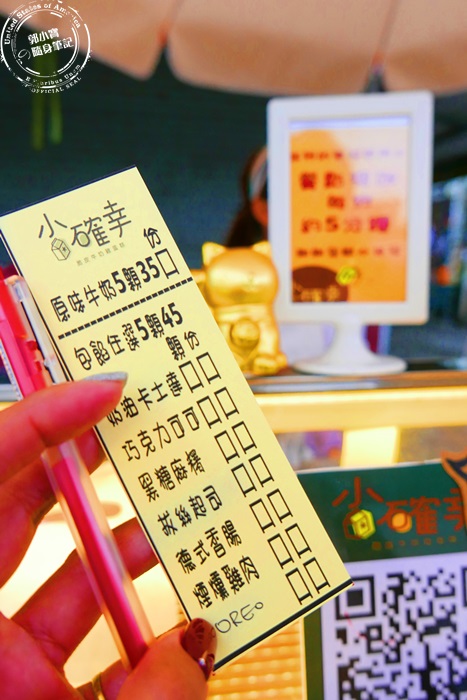 United States of America
郭小寶
の隨身筆記
小確幸
脆皮牛奶雞蛋糕
份
原味牛奶5顆35□
包餡任選5顆45
顆份
奶油卡士達□□
巧克力可可□□
黑糖麻糬□□
拔絲起司□□
德式香腸□□
煙燻雞肉□□
OREO □□
約5分鐘
小確幸